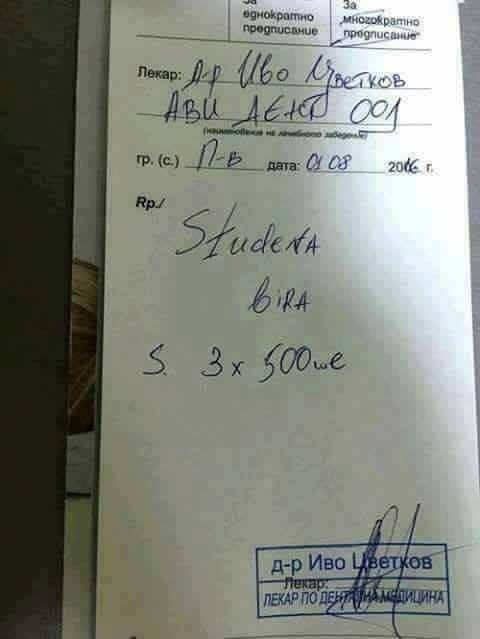 За
еднократно
предписание
За
многократно
предписание
Лекар: Д-р Иво Цветков
АВИ ДЕНТ 001
(наименование на лечебното заведение)
гр. (с.) П-в дата: 01 08 2016 г.
Rp./
Studena
bira
S. 3 x 500 мл
д-р Иво Цветков
Лекар:
ЛЕКАР ПО ДЕНТАЛНА МЕДИЦИНА